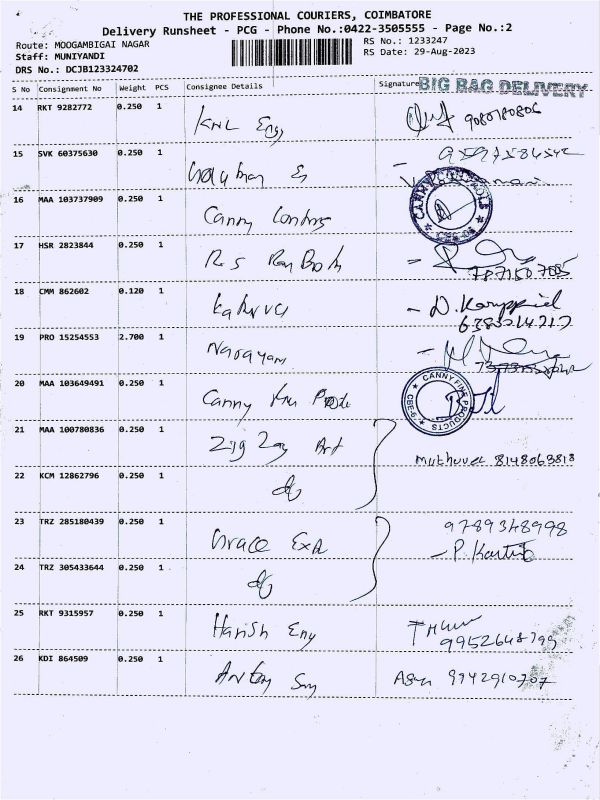 THE PROFESSIONAL COURIERS, COIMBATORE
Delivery Runsheet - PCG - Phone No.:0422-3505555 - Page No.:2
Route: MOOGAMBIGAI NAGAR RS No.: 1233247
Staff: MUNIYANDI RS Date: 29-Aug-2023
DRS No.: DCJB123324702
S No Consignment No Weight PCS Consignee Details Signature BIG BAG DELIVERY
14 RKT 9282772 0.250 1 KNL Eng 9080180806
15 SVK 60375630 0.250 1
16 MAA 103737909 0.250 1 Canny
17 HSR 2823844 0.250 1 R.S
18 CMM 862602 0.120 1
19 PRO 15254553 2.700 1 Narayan
20 MAA 103649491 0.250 1 Canny CANNY FINE PRODUCTS CBE-6
21 MAA 100780836 0.250 1 Zig Zag Art
Muthuvel 8148063818
22 KCM 12862796 0.250 1
23 TRZ 285180439 0.250 1 Grace Exp 9789348998
- P. Kartik
24 TRZ 305433644 0.250 1
25 RKT 9315957 0.250 1 Harish Eng
9952648799
26 KDI 864509 0.250 1 9942910707